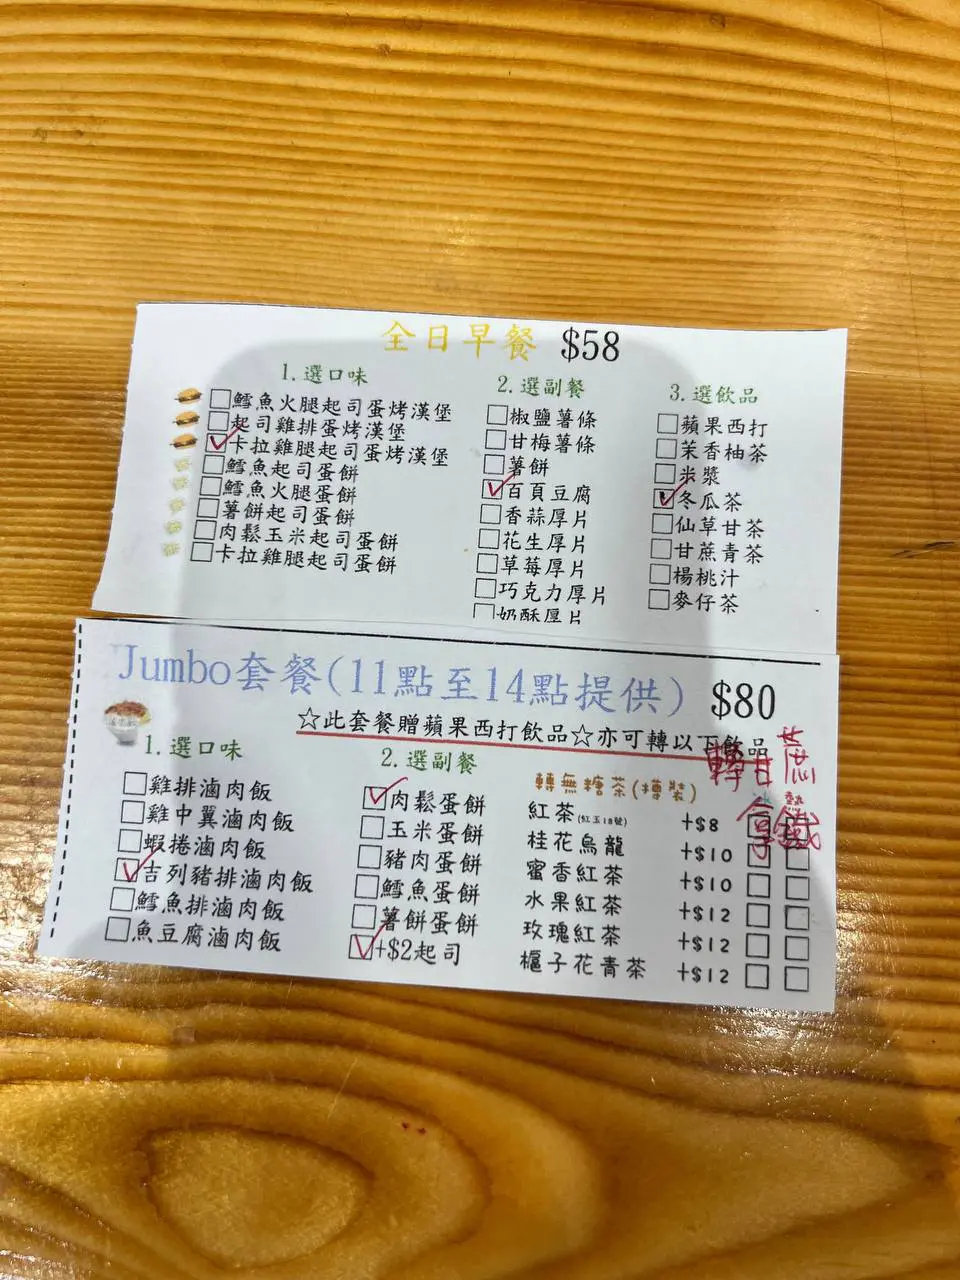 全日早餐 $58
1.選口味
鱈魚火腿起司蛋烤漢堡
起司雞排蛋烤漢堡
卡拉雞腿起司蛋烤漢堡
鱈魚起司蛋餅
鱈魚火腿蛋餅
薯餅起司蛋餅
肉鬆玉米起司蛋餅
卡拉雞腿起司蛋餅
2.選副餐
椒鹽薯條
甘梅薯條
薯餅
百頁豆腐
香蒜厚片
花生厚片
草莓厚片
巧克力厚片
奶酥厚片
3.選飲品
蘋果西打
茉香柚茶
米漿
冬瓜茶
仙草甘茶
甘蔗青茶
楊桃汁
麥仔茶
Jumbo套餐(11點至14點提供) $80
☆此套餐贈蘋果西打飲品☆亦可轉以下飲品
1.選口味
雞排滷肉飯
雞中翼滷肉飯
蝦捲滷肉飯
吉列豬排滷肉飯
鱈魚排滷肉飯
魚豆腐滷肉飯
2.選副餐
肉鬆蛋餅
玉米蛋餅
豬肉蛋餅
鱈魚蛋餅
薯餅蛋餅
+$2起司
轉無糖茶(樽裝)
熱
紅茶(紅玉18號) +$8
桂花烏龍 +$10
蜜香紅茶 +$10
水果紅茶 +$12
玫瑰紅茶 +$12
梔子花青茶 +$12
轉甘蔗